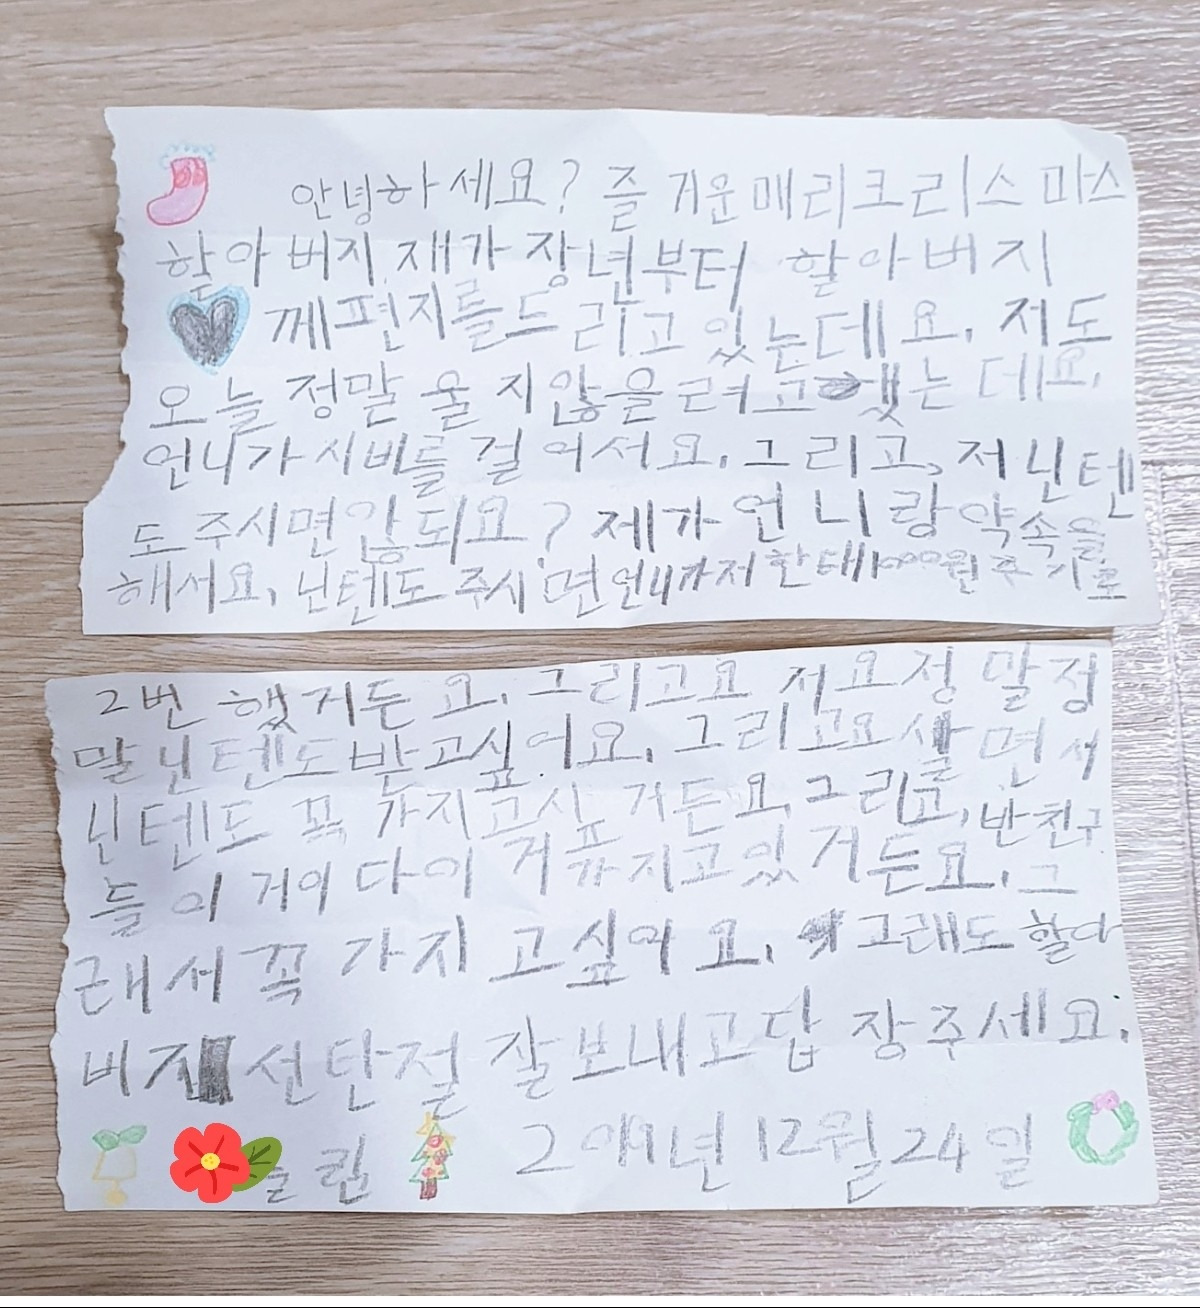 안녕하세요? 즐거운매리크리스마스
할아버지 재가 장년부터 할아버지
께편지를드리고 있는데요. 저도
오늘 정말 울지않을려고 했는데요.
언니가 시비를 걸어서요. 그리고, 저닌텐
도 주시면않되요? 제가 언니랑 약속을
해서요. 닌텐도 주시면언니가저한테1000원주기로
2번 했거든요. 그리고요 저요정말정
말닌텐도받고싶어요. 그리고요살면서
닌텐도 꼭 가지고싶거든요. 그리고, 반친구
들이 거이 다이거가지고있거든요. 그
래서 꼭 가지고싶어요. 그래도 할아
버지 선탄절 잘보내고답장주세요.
린 2019년 12월 24일